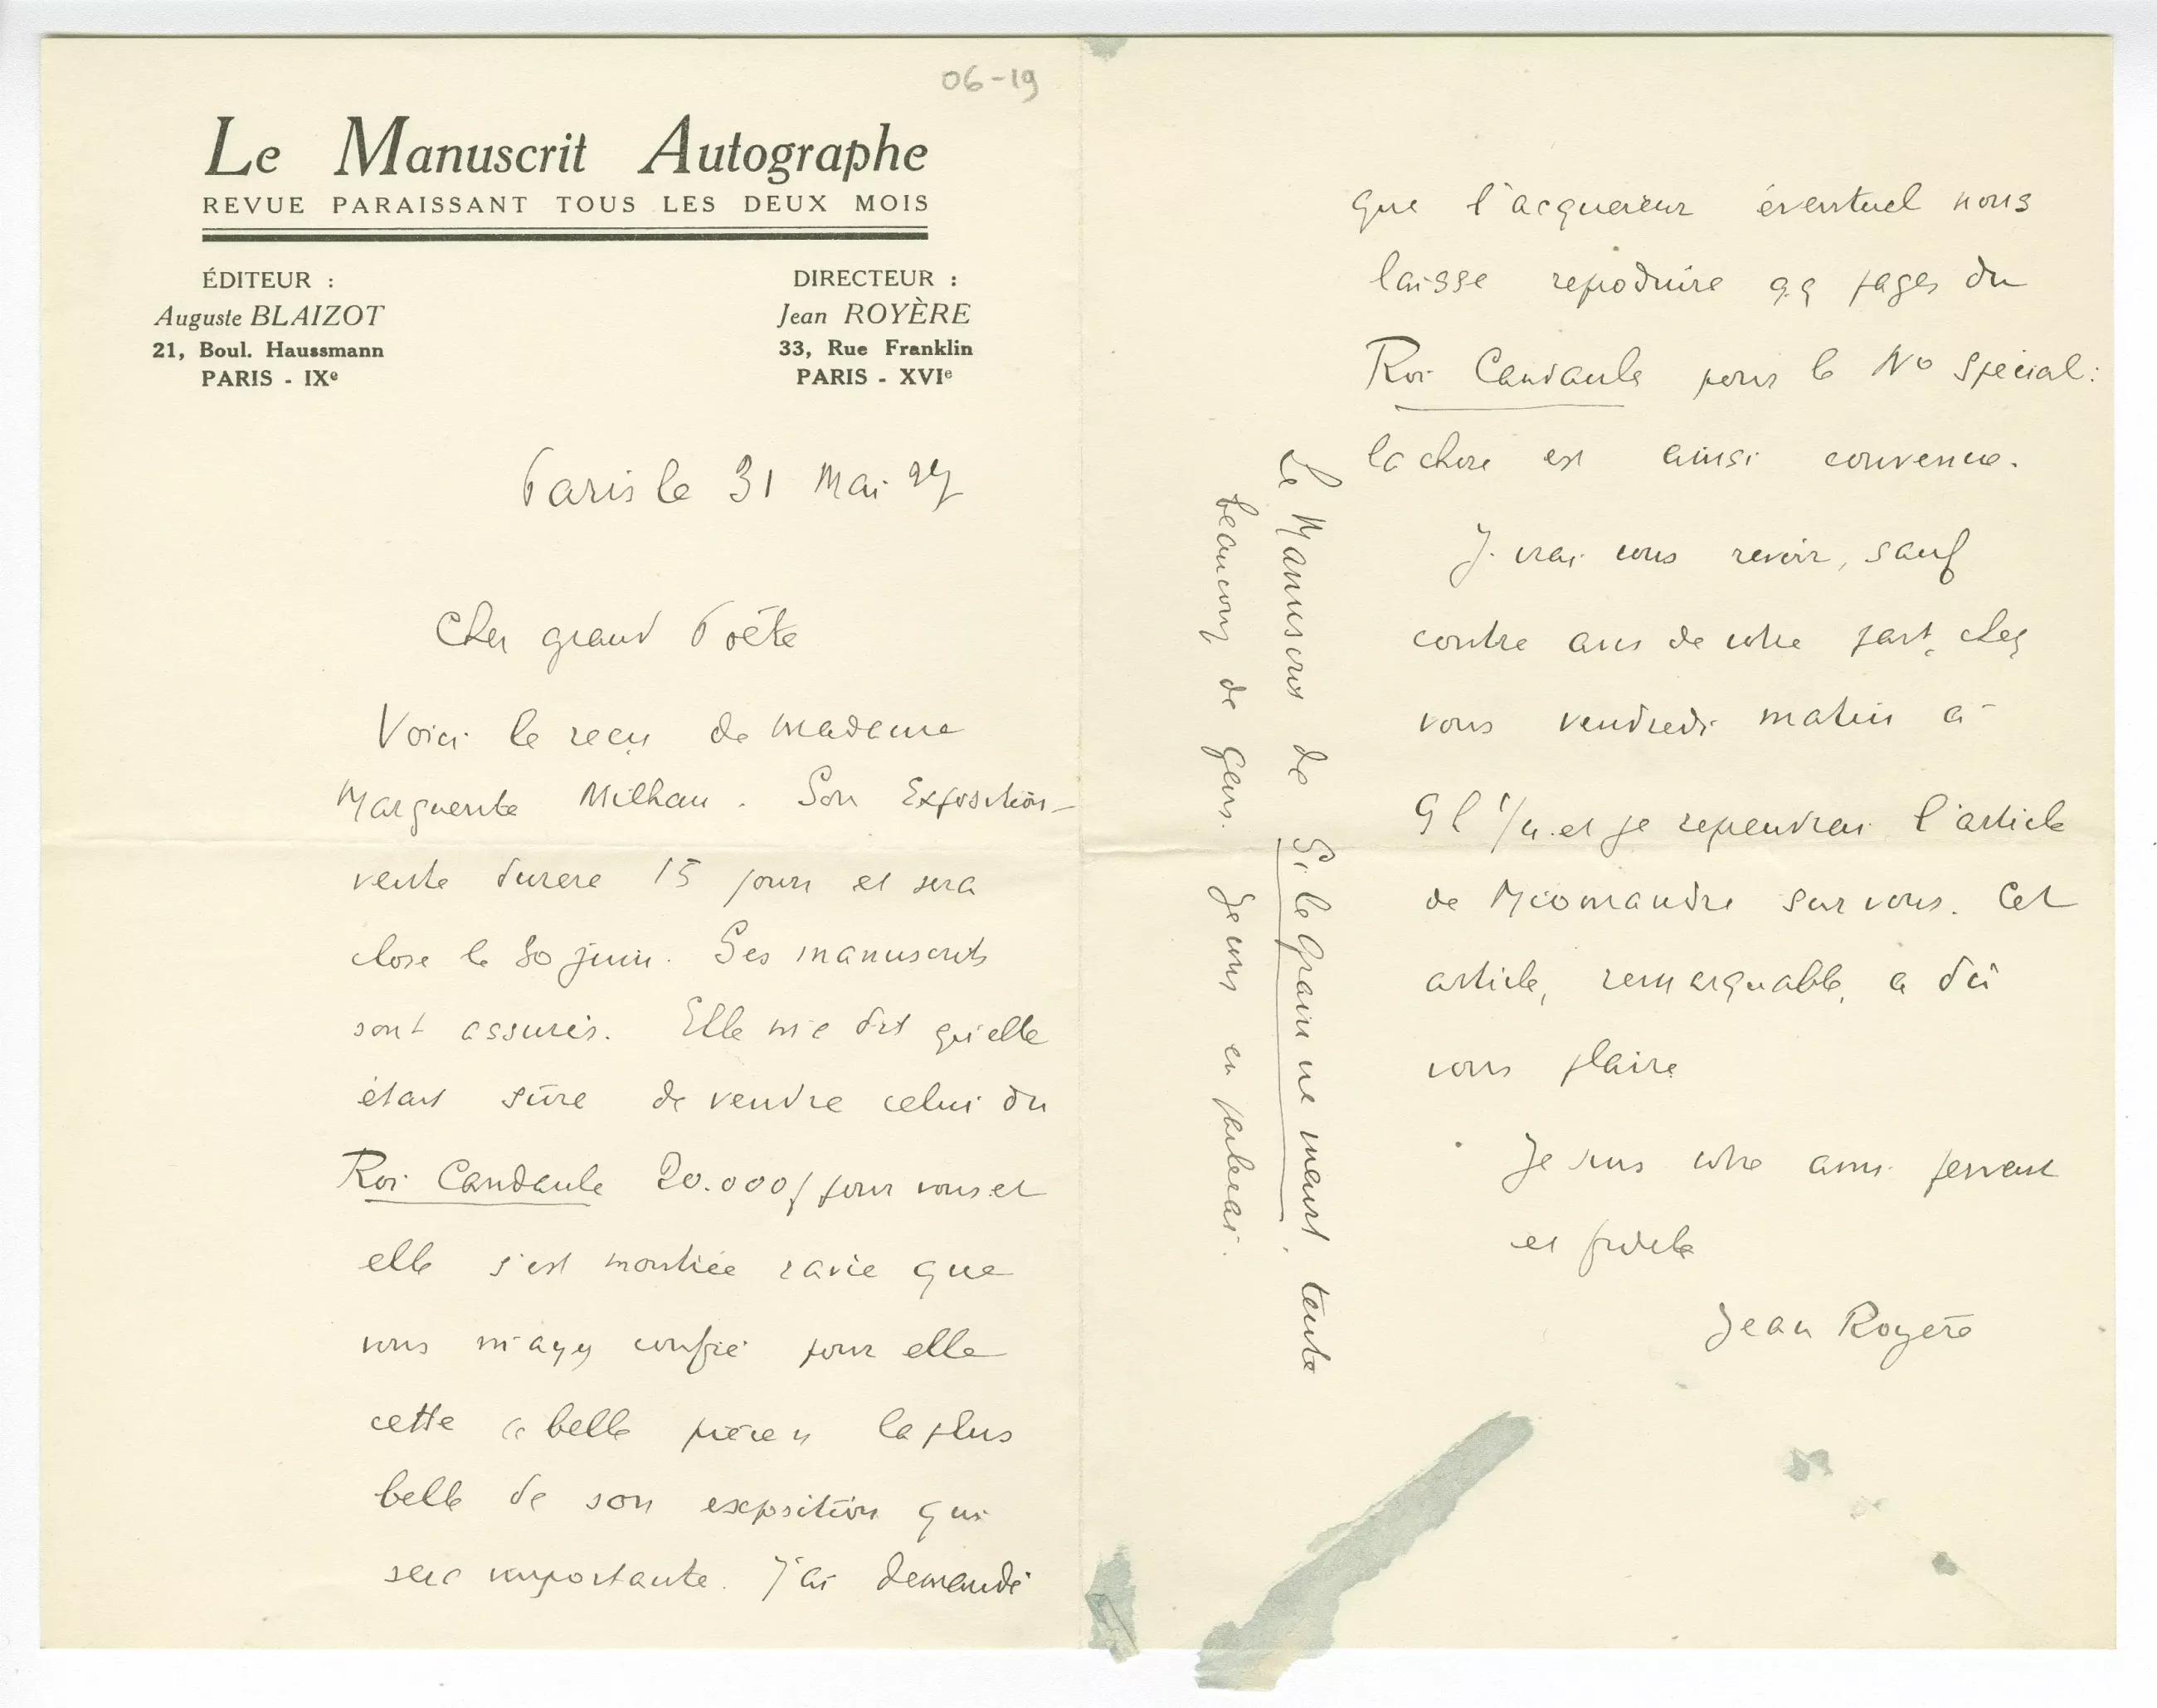 06-19
Le Manuscrit Autographe
REVUE PARAISSANT TOUS LES DEUX MOIS
ÉDITEUR :
Auguste BLAIZOT
21, Boul. Haussmann
PARIS - IXe
DIRECTEUR :
Jean ROYÈRE
33, Rue Franklin
PARIS - XVIe
Paris le 31 Mai 27
Cher grand Poëte
Voici le reçu de madame
Marguerite Milhau. Son Exposition-
vente durera 15 jours et sera
close le 30 juin. Ses manuscrits
sont assurés. Elle m'a dit qu'elle
était sûre de vendre celui du
Roi Candaule 20.000f pour vous et
elle s'est montrée ravie que
vous m'ayez confié pour elle
cette belle pièce, la plus
belle de son exposition qui
sera importante. J'ai demandé
que l'acquéreur éventuel nous
laisse reproduire qq pages du
Roi Candaule pour le No spécial:
la chose est ainsi convenue.
J'irai vous revoir, sauf
contre avis de votre part, chez
vous vendredi matin à
9 h 1/4 et je reprendrai l'article
de Miomandre sur vous. Cet
article, remarquable, a dû
vous plaire
Je suis votre ami fervent
et fidèle
Jean Royère
Le Manuscrit de Si le Grain ne meurt, tente
beaucoup de gens. Je vous en parlerai.